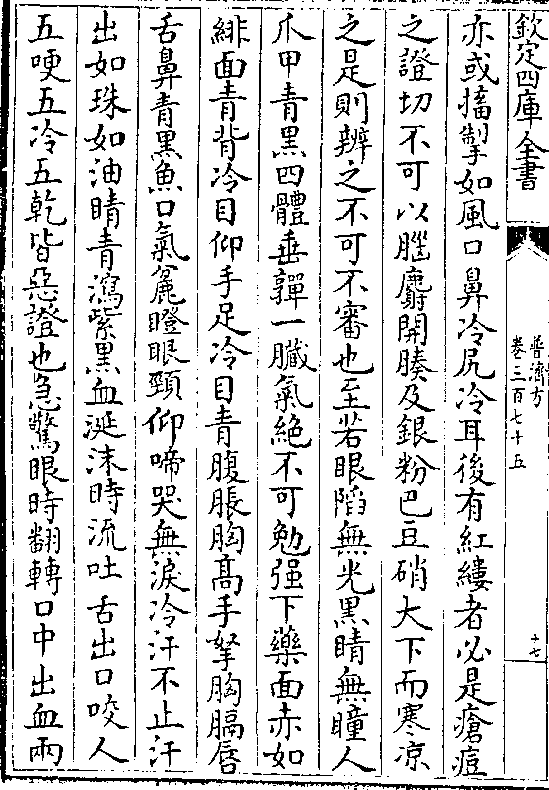 欽定四庫全書
普濟方
卷三百七十五
十七
亦或搐掣如風口鼻冷尻冷耳後有紅縷者必是瘡痘
之證切不可以腦麝開腠及銀粉巴豆硝大下而寒凉
之是則辨之不可不審也至若眼陷無光黒睛無瞳人
爪甲青黒四體垂嚲一臓氣絶不可勉强下藥面赤如
緋面青背冷目仰手足冷目青腹脹胸髙手拏胸膈唇
舌鼻青黒魚口氣麄瞪眼頸仰啼哭無淚冷汗不止汗
出如珠如油睛青瀉紫黒血涎沫時流吐舌出口咬人
五哽五冷五乾皆惡證也急驚眼時翻轉口中出血兩